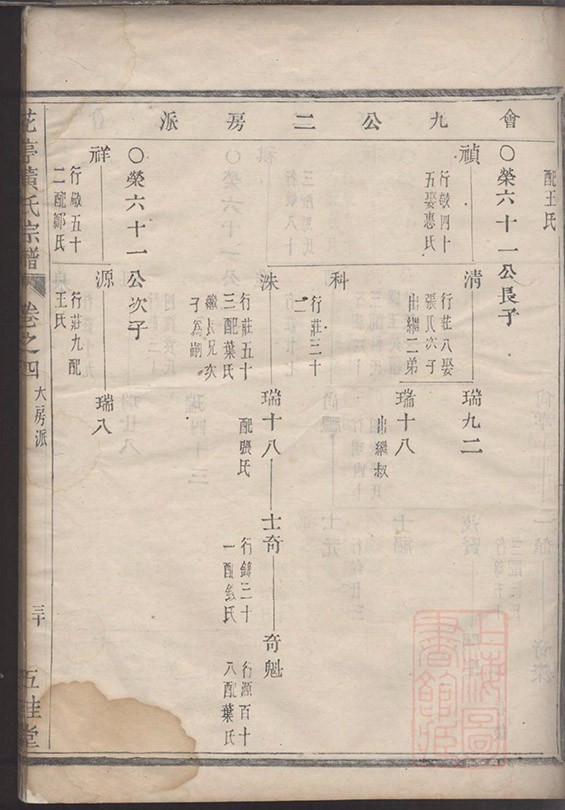 會九公二房派
配王氏
〇榮六十一公長子
禎
行敬四十
五娶惠氏
清
行莊八娶
張氏次子
出繼二弟
瑞九二
瑞十八
出繼叔
科
行莊三十
二
洙
行莊五十
三配葉氏
繼長兄次
子為嗣
瑞十八
配張氏
士奇
行錦三十
一配 氏
奇魁
行源百十
八配葉氏
〇榮六十一公次子
祥
行敬五十
二配鄒氏
源
行莊九配
王氏
瑞八
花亭黃氏宗譜
卷之四
大房派
三十
五桂堂
上海圖書館藏